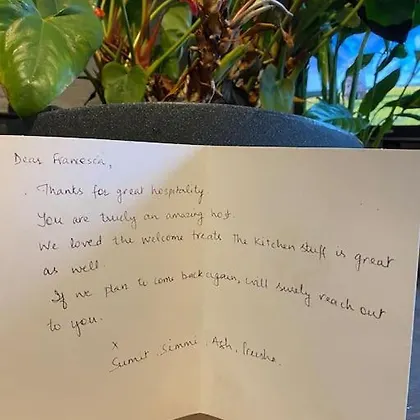 Dear Francesca,
. Thanks for great hospitality.
You are truly an amazing host.
We loved the welcome treats The Kitchen stuff is great
as well.
If we plan to come back again, will surely reach out
to you.
x
Sumit, Simmi, Ash,